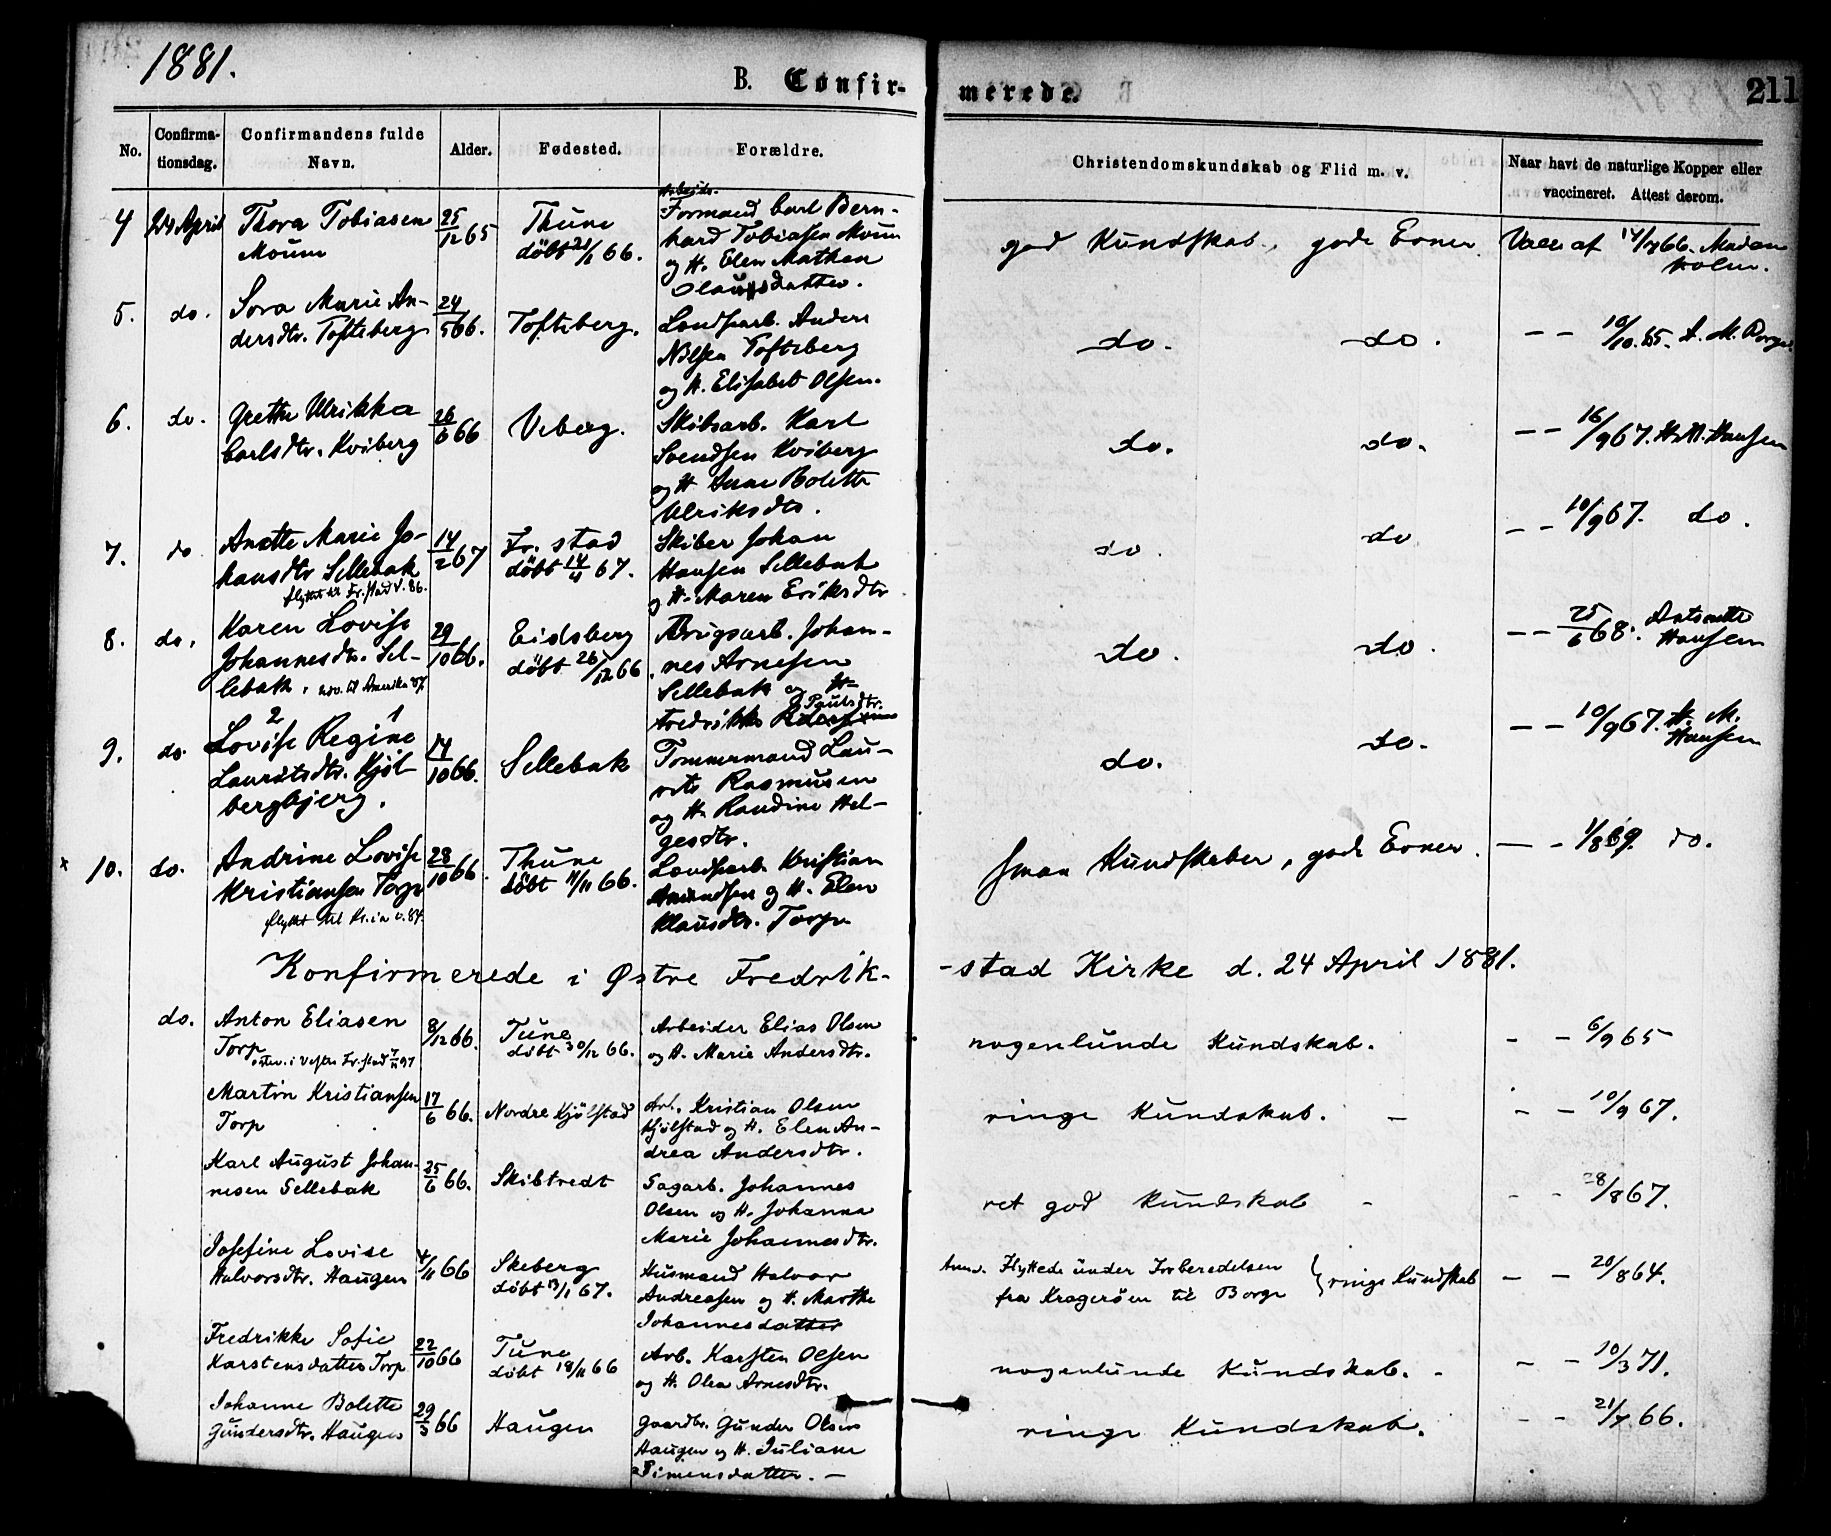 1881.
B. Confir-
merede.
211
No.
Confirma-
tionsdag.
Confirmandens fulde
Navn.
Alder.
Fødested.
Forældre.
Christendomskundskab og Flid m. v.
Naar havt de naturlige Kopper eller
vaccineret. Attest derom.
4 24 April Thora Tobiasen Moum 25/12 65 Thune döbt 21/1 66.
Arbeids-
Formand Carl Bern-
hard Tobiasen Moum
og H. Elen Mathea
Olausdatter.
god Kundskab, gode Evner Vacc af 66. Madam Holm.
5. do. Sora Marie An-
dersdtr. Tofteberg 24/5 66. Tofteberg.
Landsarb. Anders
Nilsen Tofteberg
og H. Elisabet Olsen.
do. do. — — 10/10. 65. A. M.
6. do. Grethe Ulrikka
Carlsdtr. Kviberg 26/6 66 Viberg.
Skibsarb. Karl
Svendsen Kviberg
og H Anne Bolette
Ulriksdtr.
do. do. — — 16/9 67. H. M. Hansen
7. do Anette Marie Jo-
hansdtr Sellebak
flyttet til Fr.stad v. 86.
14/2 67 Fr. stad
döbt 14/4 67.
Skiber Johan
Hansen Sellebak
og H. Maren Eriksdtr
do. do — — 10/9 67. do.
8. do. Karen Lovise
Johannesdtr. Sel-
lebak. udv. til Amerika 87
29/10 66. Eidsberg
döbt 26/12 66
Brugsarb. Johan-
nes Arnesen
Sellebak og H-
Fredrikke Paulsdtr.
do. do. — — 25/6 68. Antonette
Hansen
9. do. 2 1
Lovise Regine
Lauritsdtr. Kjöl-
bergbjerg.
14/10 66. Sellebak
Tommermand Lau-
rits Rasmusen
og H. Randine Hel-
gesdtr.
do. do. — — 10/9 67. H. M.
Hansen
x 10. do. Andrine Lovise
Kristiansen Torp
flyttet til Kr.ia v. 84.
28/10 66. Thune
döbt 11/11 66.
Landsarb. Kristian
Amundsen og H. Elen
Klausdtr. Torp
smaa Kundskaber, gode Evner. — - 1/8 69. do.
Konfirmerede i Østre Fredrik-
-stad Kirke d. 24 April 1881.
do. Anton Eliasen
Torp
8/12 66. Tune
döbt 30/12 66.
Arbeider Elias Olsen
og H. Marie Andersdtr.
nogenlunde Kundskab. - - 6/9 65
Martin Kristiansen
Torp
17/6 66. Nordre Kjölstad
Arb. Kristian Olsen
Kjölstad og H. Elen An-
drea Andersdtr.
ringe Kundskab. — - - 10/9 67.
Karl August Johan-
nesen Sellebak
25/6 66. Skibtvedt
Sagarb. Johannes
Olsen og H. Johanna
Marie Johannesdtr.
ret god Kundskab - - - 28/8 67.
Josefine Lovise
Halvorsdtr. Haugen
4/11 66 Skeberg
döbt 13/1 67.
Husmand Halvor
Andreasen og H. Marthe
Johannesdatter
Anm. Flyttede under Forberedelsen
fra Kragerøen til Borge
ringe Kundskab — — 20/8 64.
Fredrikke Sofie
Karstensdatter Torp
22/10 66 Tune
döbt 18/11 66
Arb. Karsten Olsen
og H. Olea Arnesdtr.
nogenlunde Kundskab. - — — 10/3 71.
Johanne Bolette
Gundersdtr. Haugen
29/3 66 Haugen
Gaardbr. Gunder Olsen
Haugen og H. Juliane
Simensdatter. —
ringe Kundskab. - - 21/7 66.